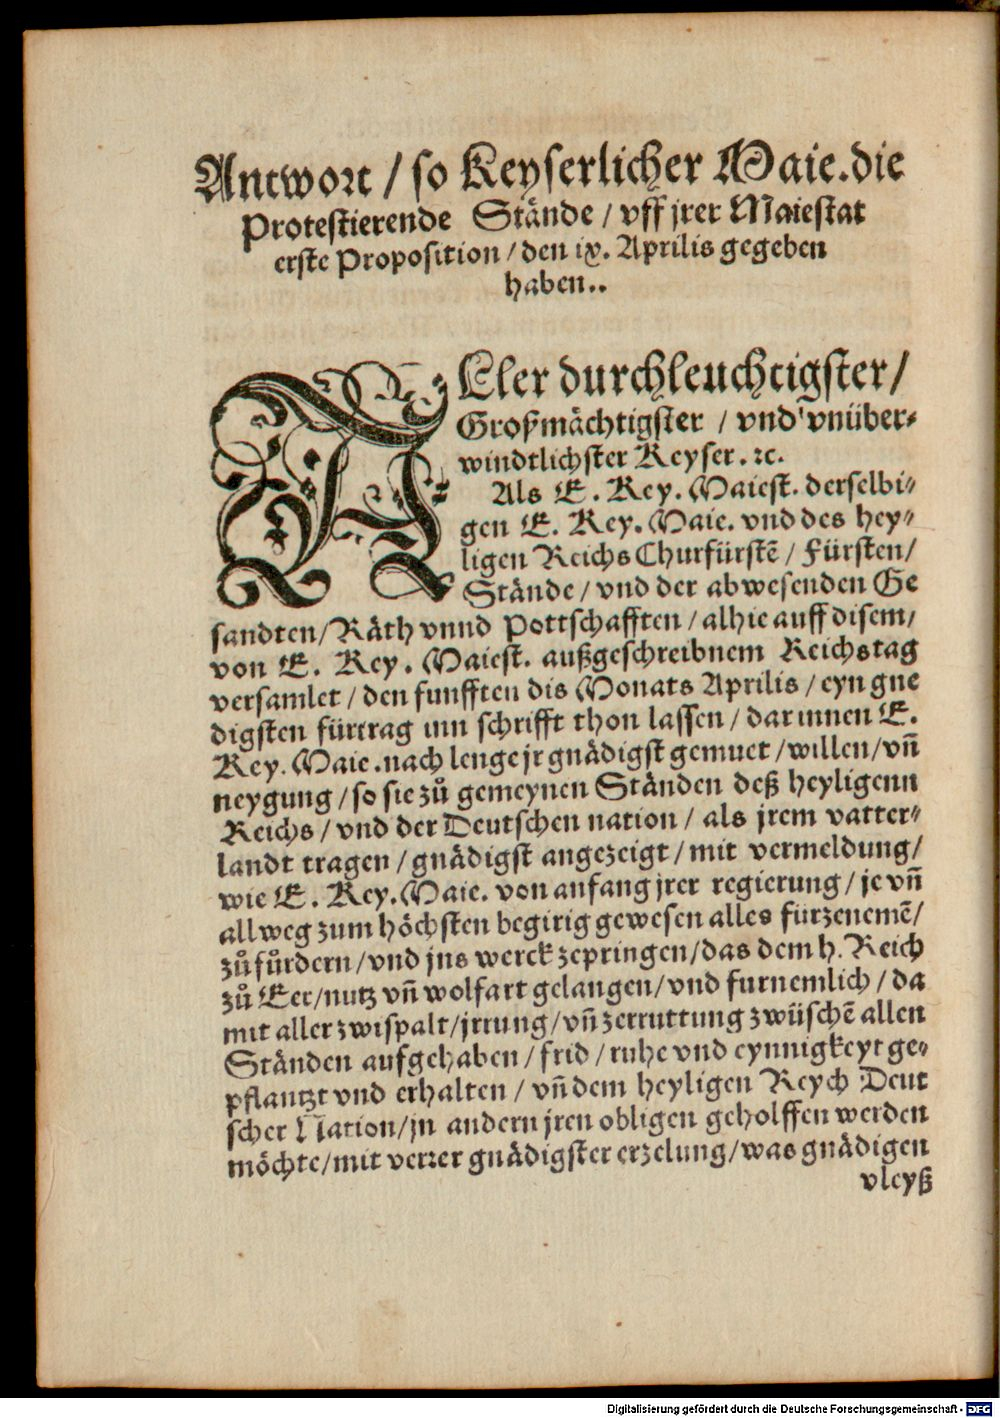 Antwort / so Keyserlicher Maie. die
Protestierende Stände / vff jrer Maiestat
erste Proposition / den ix. Aprilis gegeben
haben..
ALler durchleuchtigster /
Großmächtigster / vnd vnüber-
windtlichster Keyser. ꝛc.
Als E. Key. Maiest. derselbi-
gen E. Key. Maie. vnd des hey-
ligen Reichs Churfürstē / Fürsten /
Stände / vnd der abwesenden Ge
sandten / Räth vnnd Pottschafften / alhie auff disem /
von E. Key. Maiest. außgeschreibnem Reichstag
versamlet / den funfften dis Monats Aprilis / eyn gne
digsten fürtrag inn schrifft thon lassen / darinnen E.
Key. Maie. nach lenge jr gnädigst gemuet / willen / vñ
neygung / so sie zů gemeynen Ständen deß heyligenn
Reichs / vnd der Deutschen nation / als jrem vatter-
landt tragen / gnädigst angezeigt / mit vermeldung /
wie E. Key. Maie. von anfang jrer regierung / je vñ
allweg zum höchsten begirig gewesen alles fürzenemē /
zů fůrdern / vnd jns werck zepringen / das dem h. Reich
zů Eer / nutz vñ wolfart gelangen / vnd furnemlich / da
mit aller zwispalt / jrrung / vñ zerruttung zwüschē allen
Ständen aufgehaben / frid / ruhe vnd eynnigkeyt ge-
pflantzt vnd erhalten / vñ dem heyligen Reych Deut
scher Nation / jn andern jren obligen geholffen werden
möchte / mit verrer gnädigster erzelung / was gnädigen
vleyß
Digitalisierung gefördert durch die Deutsche Forschungsgemeinschaft - DFG